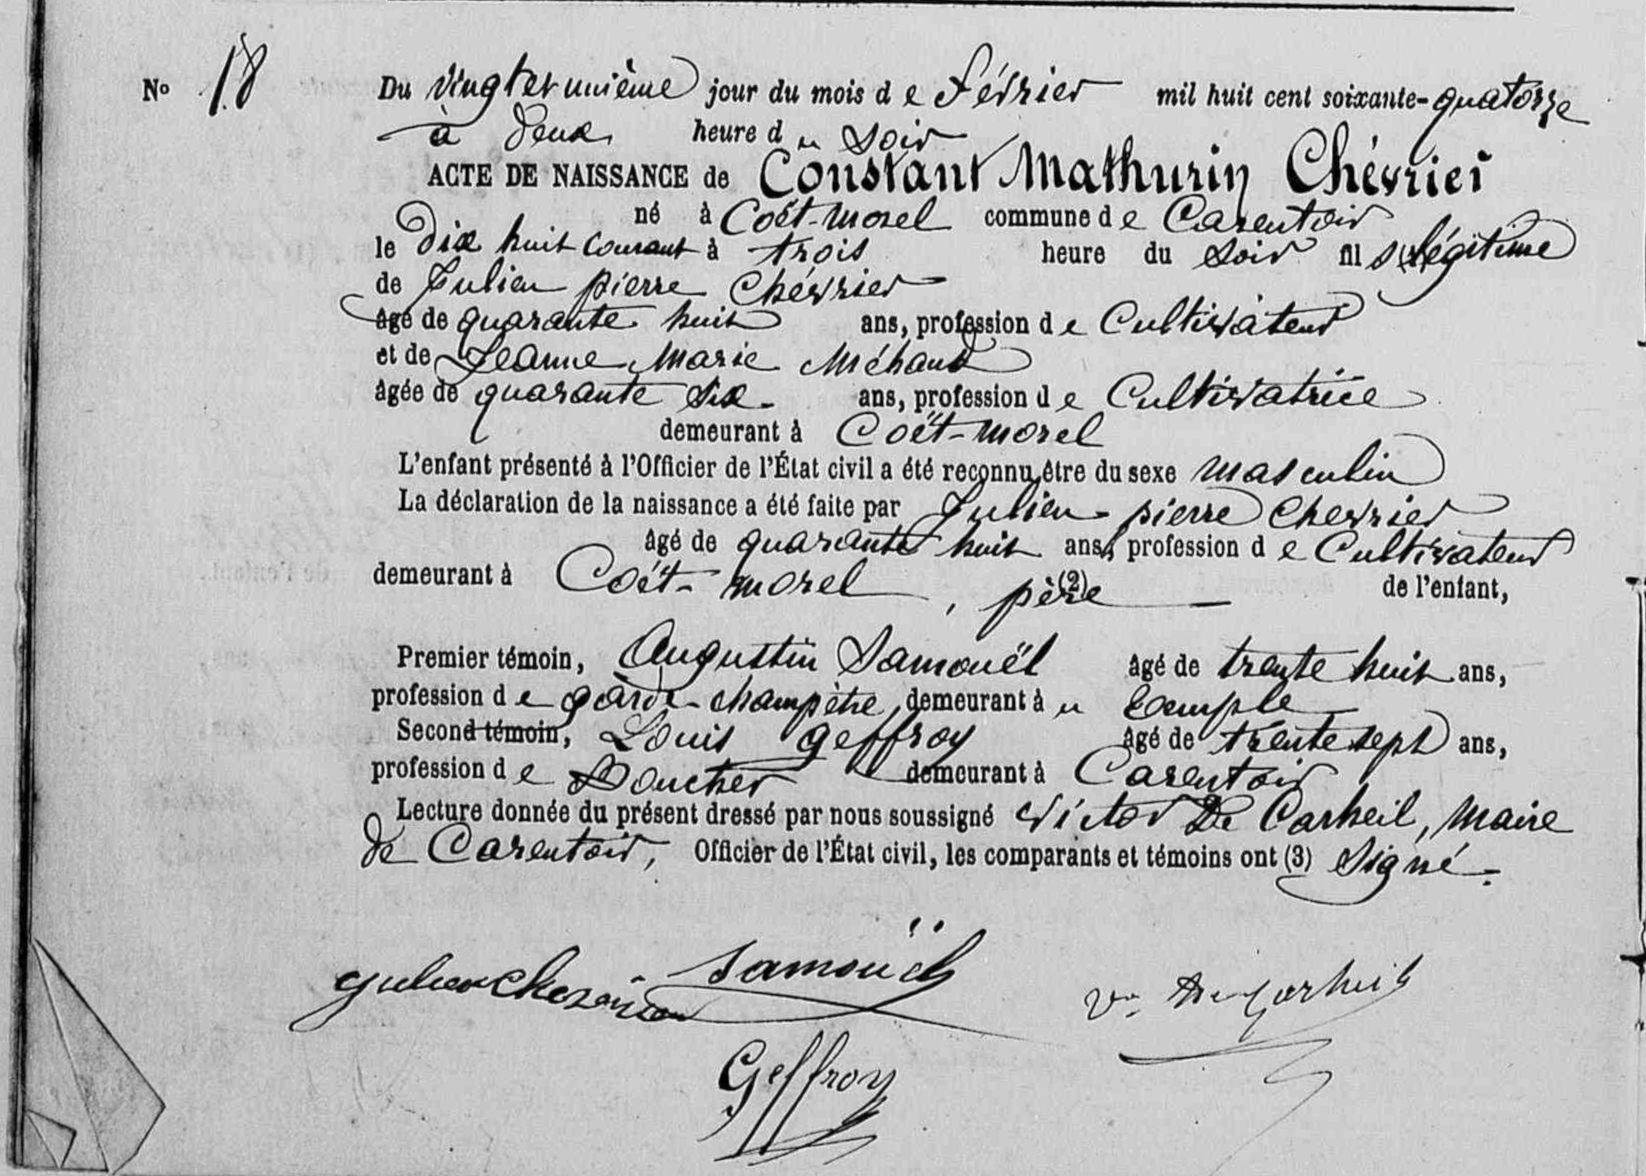 No 18
Du vingt et unième jour du mois de Février mil huit cent soixante-quatorze
à deux heure du soir
ACTE DE NAISSANCE de Constant Mathurin Chévrier
né à Coët-morel commune de Carentoir
le dix huit courant à trois heure du soir fils légitime
de Julien pierre Chévrier
âgé de quarante huit ans, profession de Cultivateur
et de Jeanne Marie Méhaud
âgée de quarante six ans, profession de Cultivatrice
demeurant à Coët-morel
L'enfant présenté à l'Officier de l'État civil a été reconnu être du sexe masculin
La déclaration de la naissance a été faite par Julien pierre Chevrier
âgé de quarante huit ans, profession de Cultivateur
demeurant à Coët-morel, père (2) de l'enfant,
Premier témoin, Augustin Samouël âgé de trente huit ans,
profession de garde-champêtre, demeurant à u temple
Second témoin, Louis geffroy âgé de trente sept ans,
profession de Boucher demeurant à Carentoir
Lecture donnée du présent dressé par nous soussigné Victor De Carheil, maire
de Carentoir, Officier de l'État civil, les comparants et témoins ont (3) signé.
Samouël
Geffroy